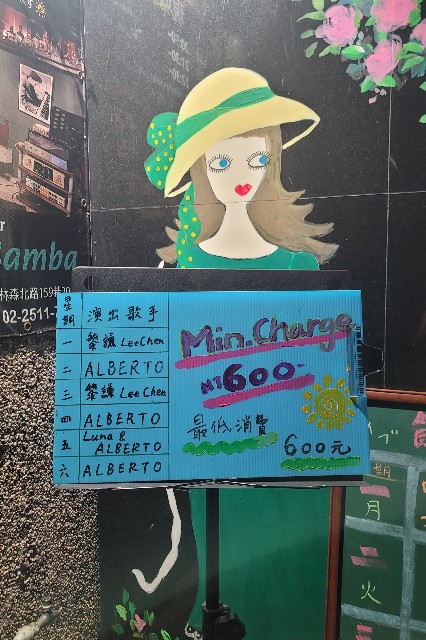 amba
林森北路159巷
02-2511-7
星期 演出歌手
一 黎鎮 LeeChen
二 ALBERTO
三 黎鎮 Lee Chen
四 ALBERTO
五 Luna & ALBERTO
六 ALBERTO
Min. Charge
NT 600.-
最低消費
600元
期
月
火